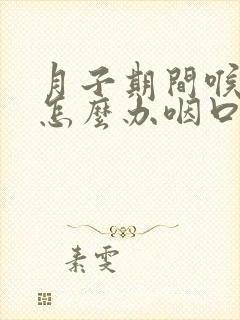 月子期間喉
怎麼办咽口
素雯